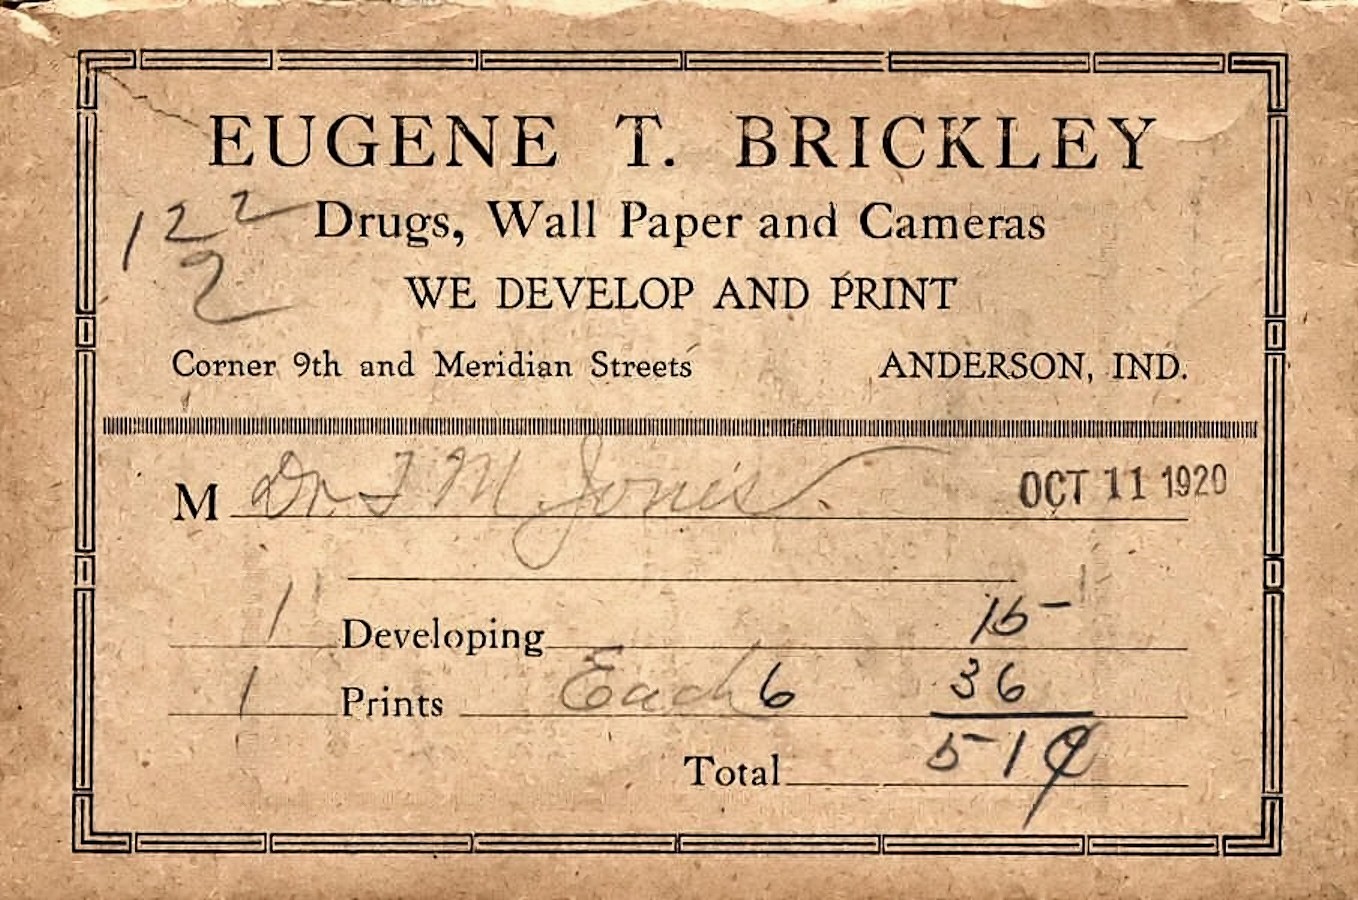 EUGENE T. BRICKLEY
122 Drugs, Wall Paper and Cameras
2
WE DEVELOP AND PRINT
Corner 9th and Meridian Streets ANDERSON, IND.
M Dr I M Jones. OCT 11 1920
1 Developing 15-
1 Prints Each 6 36
Total 51¢